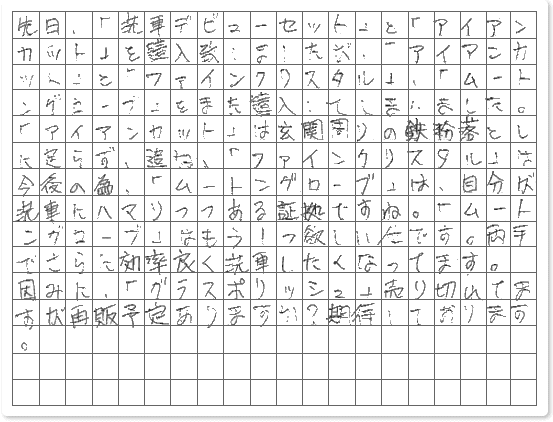 先日、「洗車デビューセット」と「アイアン
カット」を購入致しましたが、「アイアンカ
ット」と「ファインクリスタル」、「ムート
ングローブ」をまた購入してしまいました。
「アイアンカット」は玄関周りの鉄粉落とし
に足らず、追加、「ファインクリスタル」は
今後の為、「ムートングローブ」は、自分が
洗車にハマりつつある証拠ですね。「ムート
ングローブ」はもう1つ欲しいんです。両手
でさらに効率良く洗車したくなってます。
因みに、「ガラスポリッシュ」売り切れてま
すが再販予定ありますか?期待しております
。